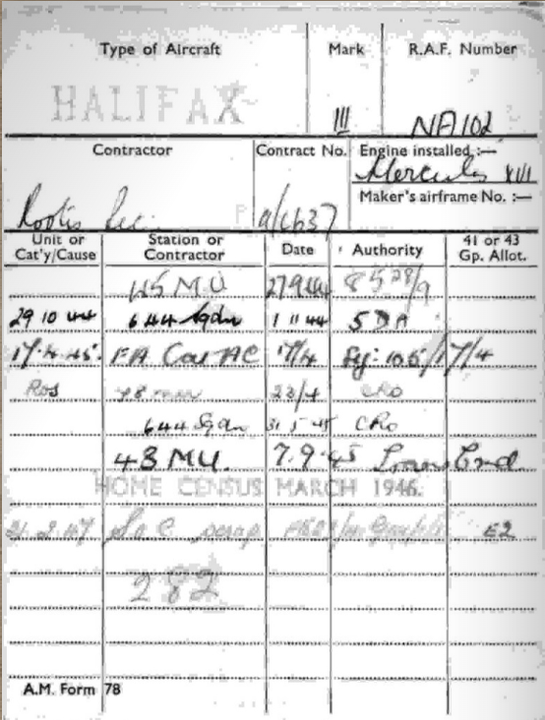 Type of Aircraft Mark R.A.F. Number
HALIFAX III NA102
Contractor Contract No. Engine installed :—
Hercules XVI
Maker's airframe No. :—
Rootes Sec. a/c637
Unit or Cat'y/Cause Station or Contractor Date Authority 41 or 43 Gp. Allot.
45 MU 27 9 44
29 10 44 644 Sqdn 1 11 44 SDA
17.4.45. FA Cat AC 17/4 106/17/4
Ros 23/4 CRO
644 Sqdn 31 5 45 CRO
48 MU. 7.9.45
HOME CENSUS MARCH 1946.
2 47 SOC scrap E2
282
A.M. Form 78